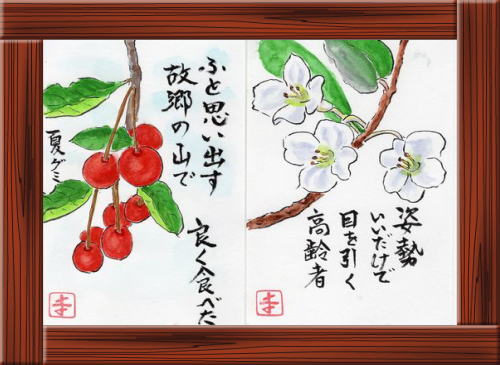 ふと思い出す
故郷の山で
良く食べた
夏グミ
姿勢
いいだけで
目を引く
高齢者